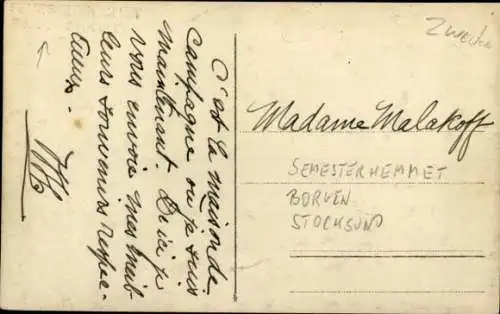 C'est la maison de
Campagne ou je suis
Maintenant. D'ici je
vous envoie mes meil-
leurs souvenirs respec-
tueux.
Madame Malakoff
SEMESTERHEMMET
BORGEN
STOCKSUND